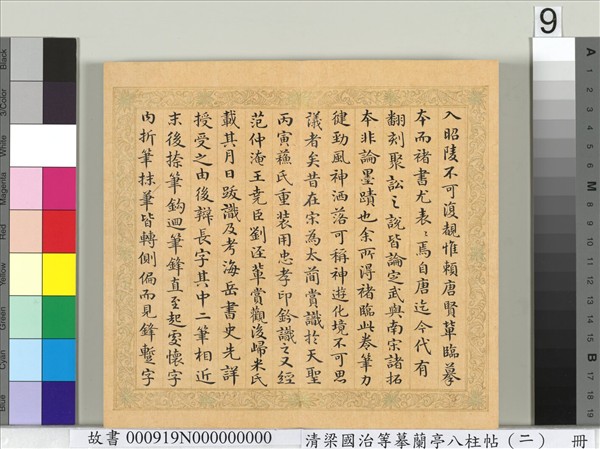 入昭陵不可復覩惟賴唐賢摹臨摹
本而褚書尤表〻焉自唐迄今代有
翻刻聚訟之說皆論定武與南宋諸拓
本非論墨蹟也余所得褚臨此卷筆力
健勁風神洒落可稱神遊化境不可思
議者矣昔在宋為太簡賞識於天聖
丙寅蘇氏重裝用忠孝印鈐識之又經
范仲淹王堯臣劉涇輩賞觀後歸米氏
載其月日跋識及考海岳書史先詳
授受之由後辯長字其中二筆相近
末後捺筆鈎迴筆鋒直至起處懷字
內折筆抹筆皆轉側偏而見鋒蹔字
9
Black
3/Color
White
Magenta
Red
Yellow
Green
Cyan
Blue
A
1
2
3
4
5
6
M
8
9
10
11
12
13
14
15
B
17
18
19
故書 000919N000000000
清梁國治等摹蘭亭八柱帖(二) 冊